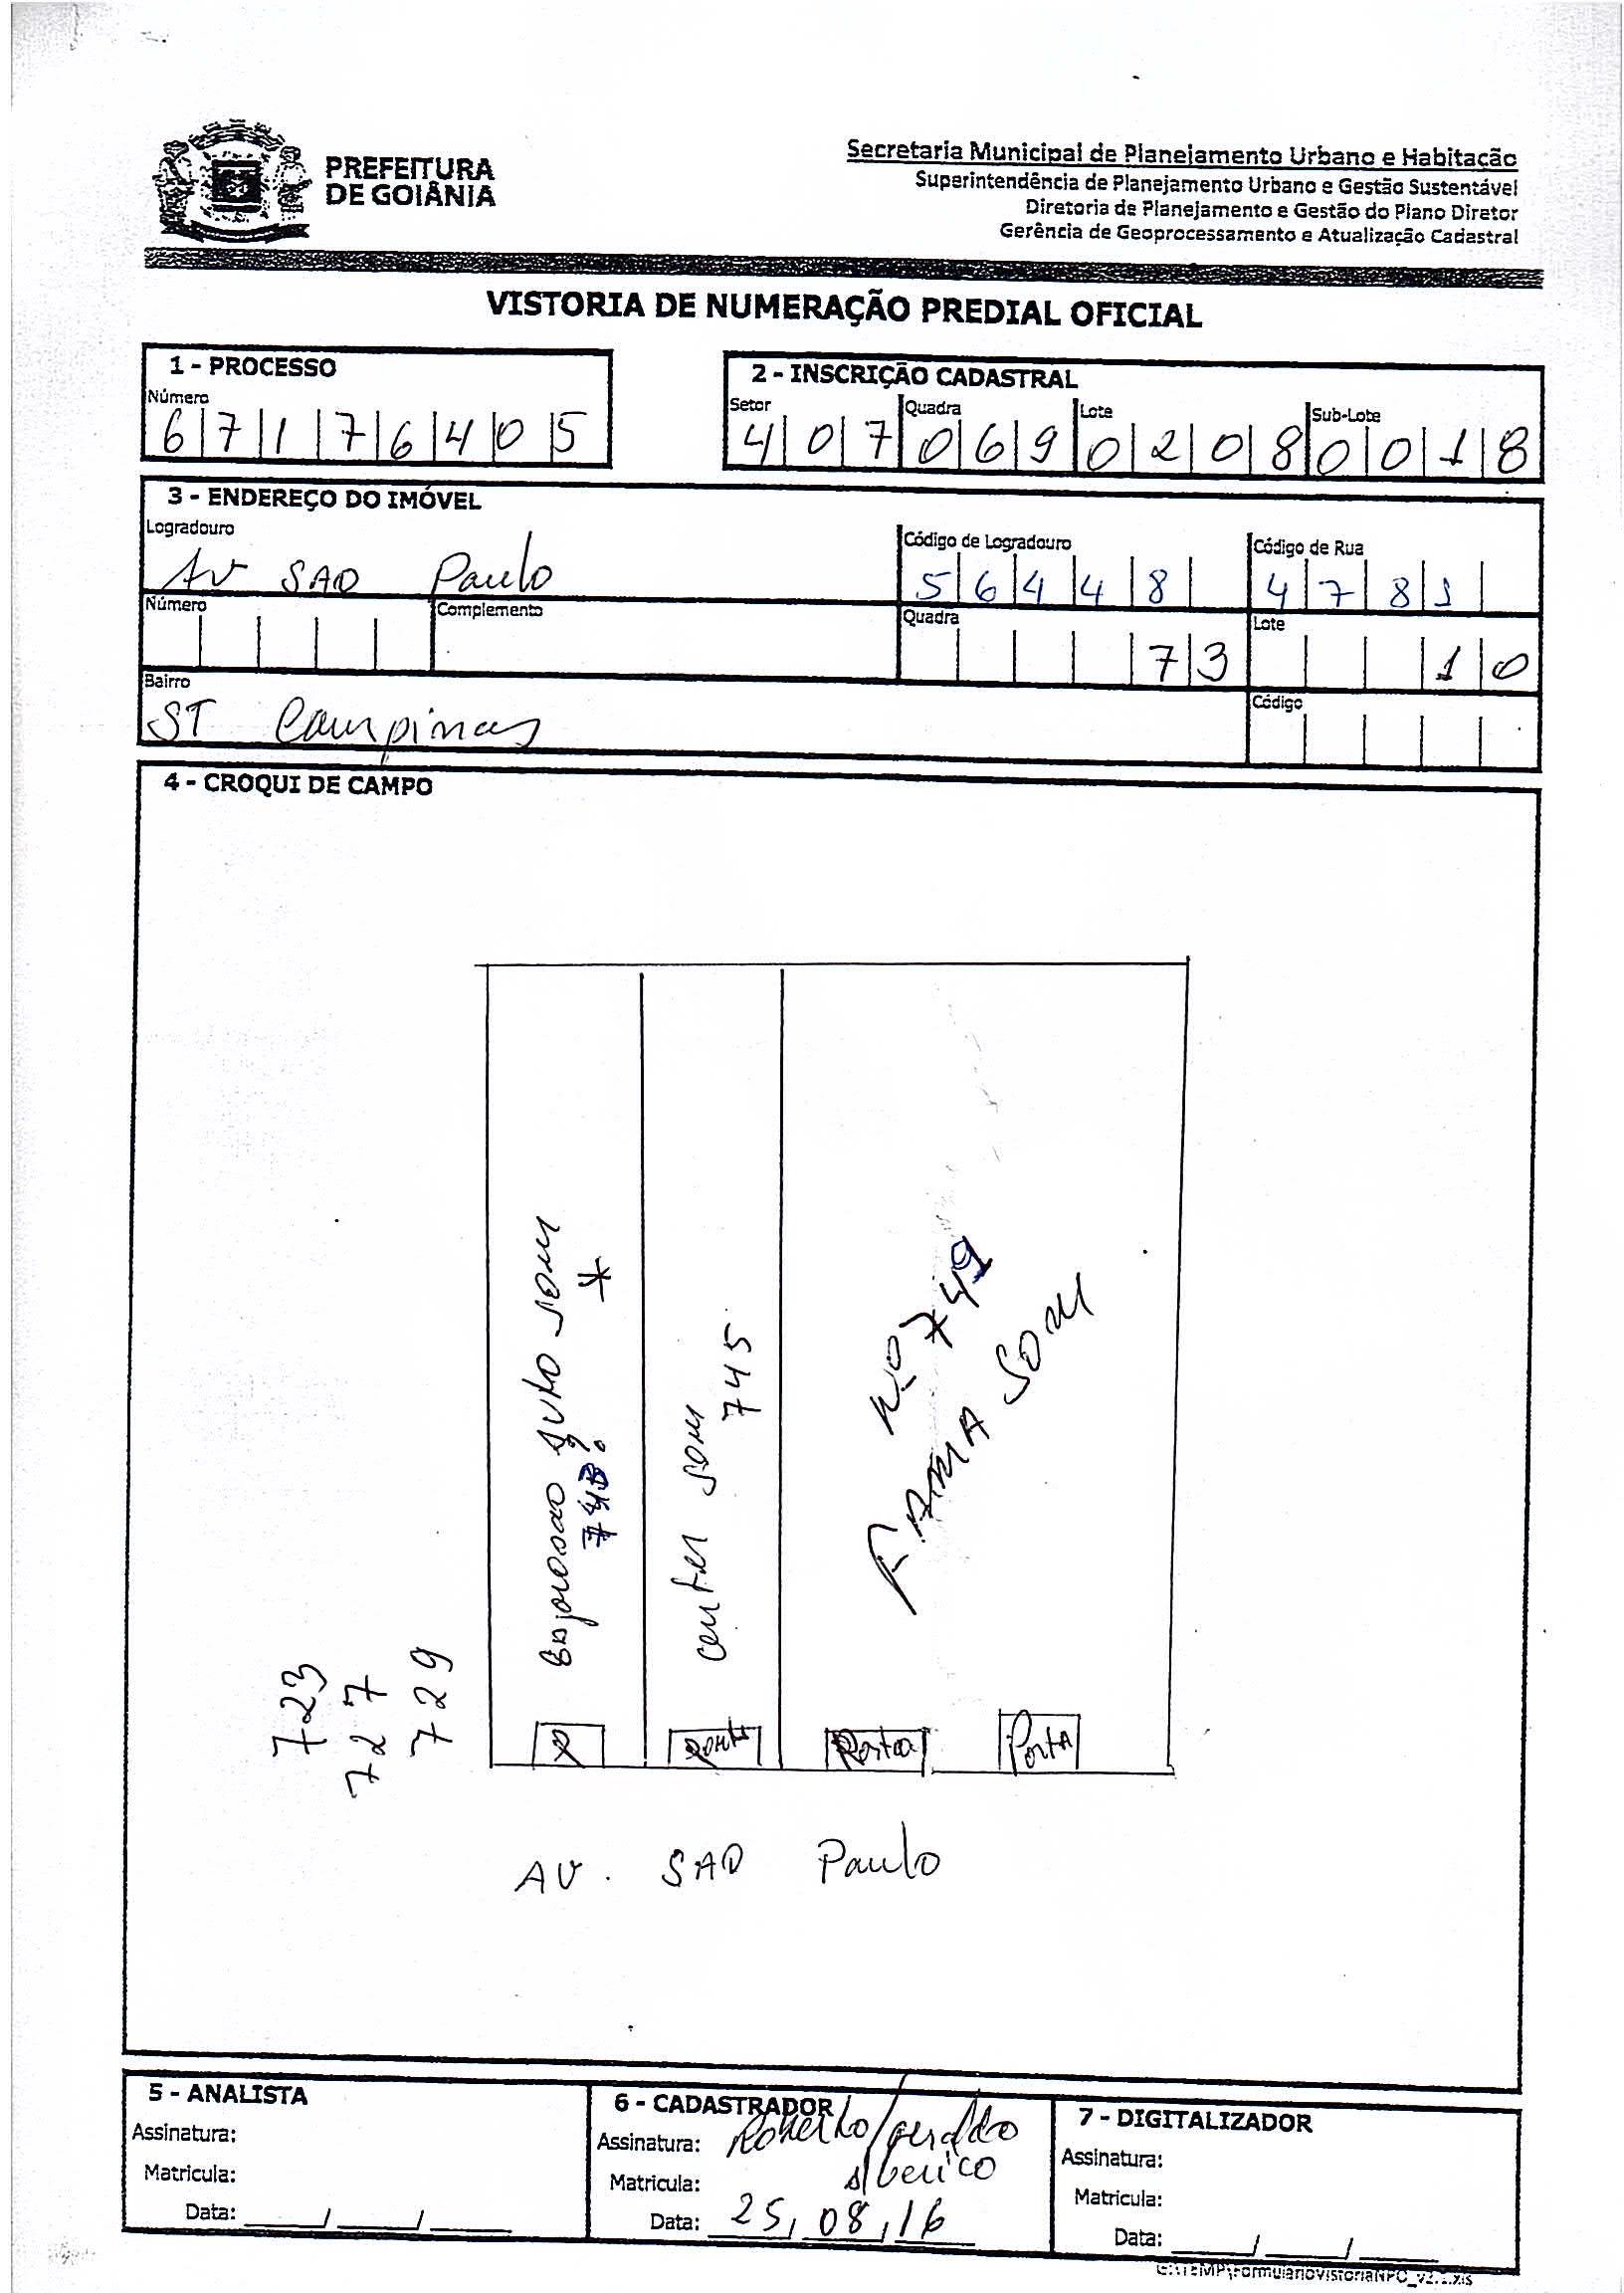 PREFEITURA
DE GOIÂNIA
Secretaria Municipal de Planejamento Urbano e Habitação
Superintendência de Planejamento Urbano e Gestão Sustentável
Diretoria de Planejamento e Gestão do Plano Diretor
Gerência de Geoprocessamento e Atualização Cadastral
VISTORIA DE NUMERAÇÃO PREDIAL OFICIAL
1 - PROCESSO
Número
6 7 1 7 6 4 0 5
2 - INSCRIÇÃO CADASTRAL
Setor Quadra Lote Sub-Lote
4 0 7 0 6 9 0 2 0 8 0 0 1 8
3 - ENDEREÇO DO IMÓVEL
Logradouro Código de Logradouro Código de Rua
AV SAO Paulo 5 6 4 4 8 4 7 8 1
Número Complemento Quadra Lote
7 3 1 0
Bairro Código
ST Campinas
4 - CROQUI DE CAMPO
723
727
729
auto som
*
center som
745
Nº 749
FAMA SOM
Porta
Porta
AV. SAO Paulo
5 - ANALISTA
Assinatura:
Matricula:
Data: ____/____/____
6 - CADASTRADOR
Assinatura: Roberto/Geraldo
Matricula:
Data: 25/08/16
7 - DIGITALIZADOR
Assinatura:
Matricula:
Data: ____/____/____
G:\TEMP\FormularioVistoriaNPO_v2.1.xls